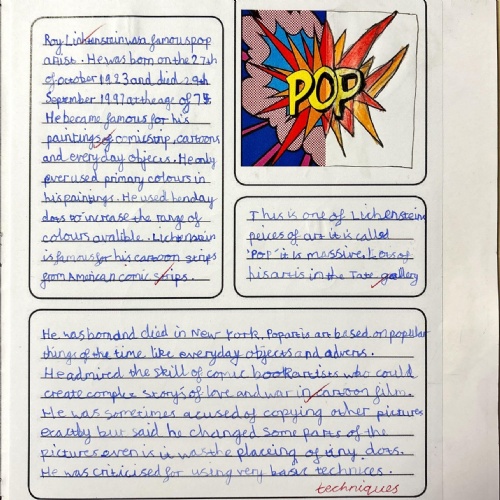 Roy Lichtenstein was a famous pop
artist. He was born on the 27th
of october 1923 and died 29th
September 1997 at the age of 73
He became famous for his
paintings of comic strip, cartoons
and every day objects. He only
ever used primary colours in
his paintings. He used benday
dots to increase the range of
colours avalible. Lichenstein
is famous for his cartoon strips
from American comic strips.
POP
This is one of Lichensteins
peices of art it is called
'Pop' it is massive. Lots of
his art is in the Tate gallery
He was born and died in New York. Popart is art based on popular
things of the time like everyday objects and adverts.
He admired the skill of comic book artists who could
create complex story's of love and war in cartoon film.
He was sometimes acused of copying other pictures
exactly but said he changed some parts of the
pictures even is it was the placeing of tiny dots.
He was criticised for using very basic technices.
techniques